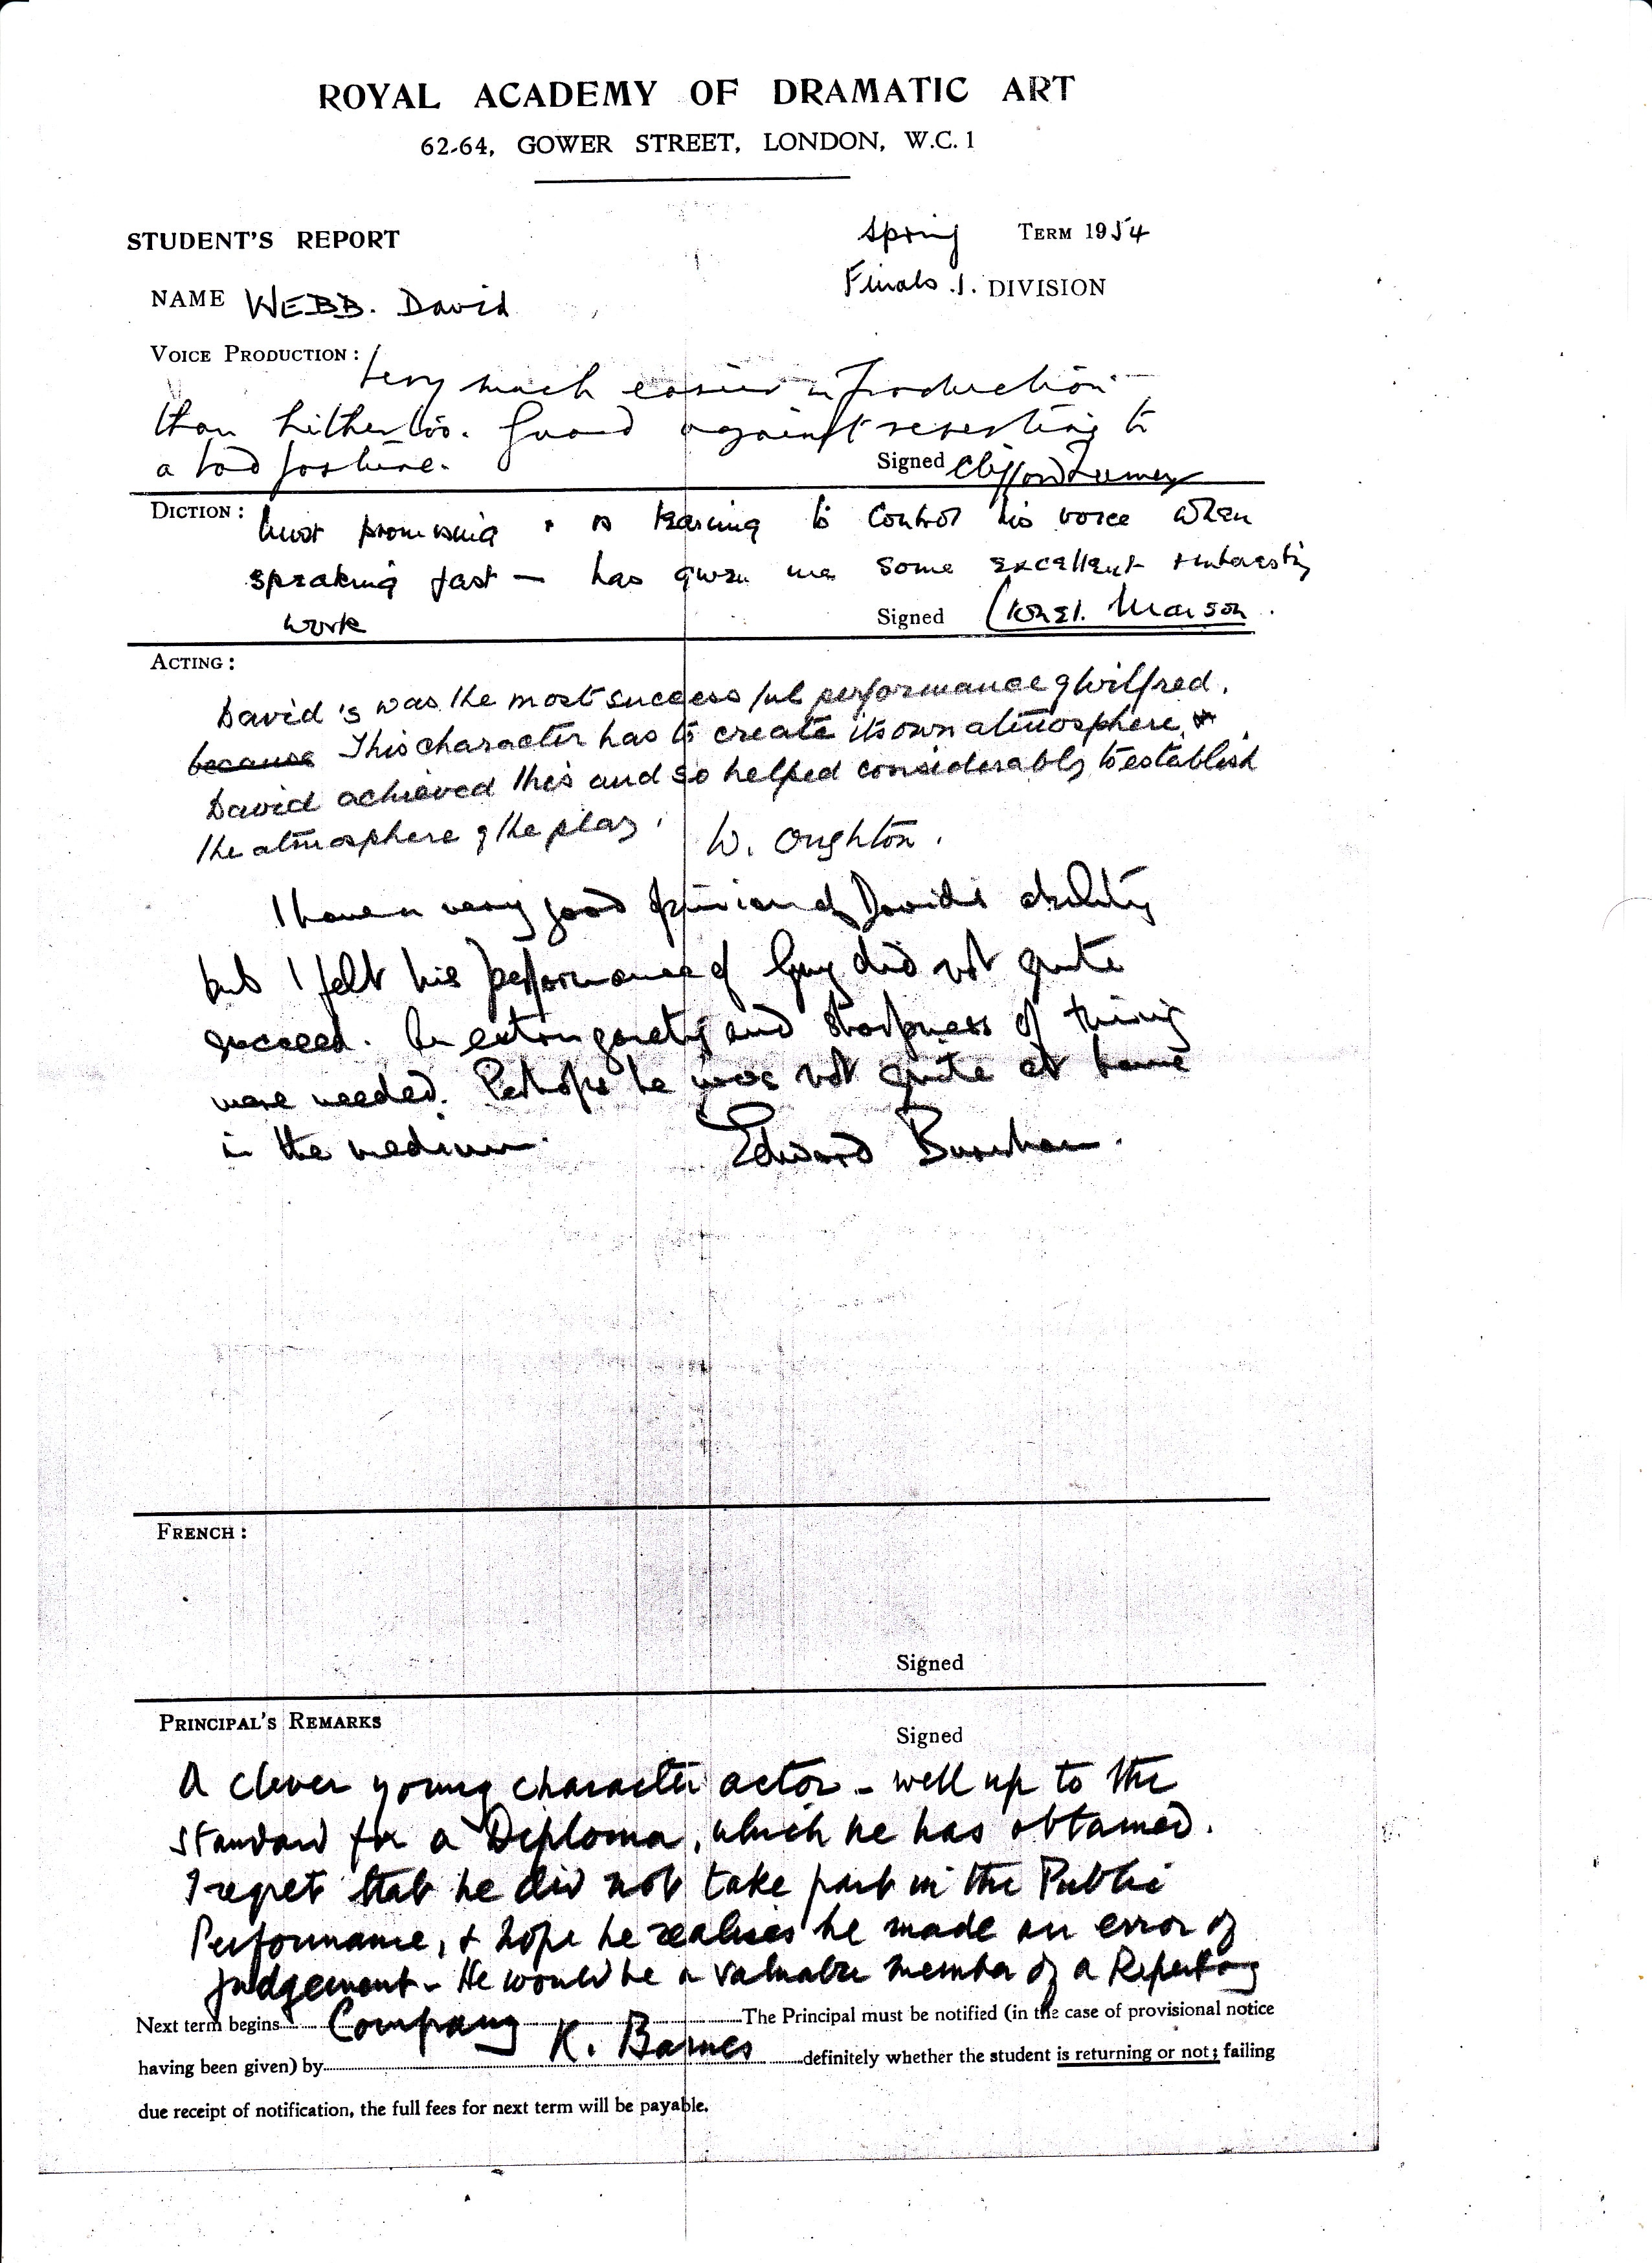 ROYAL ACADEMY OF DRAMATIC ART
62-64, GOWER STREET, LONDON, W.C. 1
STUDENT'S REPORT
Spring TERM 1954
NAME WEBB. David
Finals .1. DIVISION
VOICE PRODUCTION:
Very much easier in production
than hitherto. Guard against reverting to
a bad posture.
Signed Clifford Turner
DICTION: Most promising & is learning to control his voice when
speaking fast — has given me some excellent & interesting
work
Signed Marson.
ACTING:
David's was the most successful performance of Wilfred.
because This character has to create its own atmosphere.
David achieved this and so helped considerably to establish
the atmosphere of the play. W. Oughton.
I have a very good opinion of David's ability
but I felt his performance of Guy did not quite
succeed. An extra gaiety and sharpness of timing
were needed. Perhaps he was not quite at home
in the medium. Edward Burnham.
FRENCH:
Signed
PRINCIPAL'S REMARKS
Signed
A clever young character actor - well up to the
standard for a Diploma, which he has obtained.
I regret that he did not take part in the Public
Performance, & hope he realises he made an error of
judgement - He would be a valuable member of a Repertory
Company
K. Barnes
Next term begins The Principal must be notified (in the case of provisional notice
having been given) by definitely whether the student is returning or not; failing
due receipt of notification, the full fees for next term will be payable.